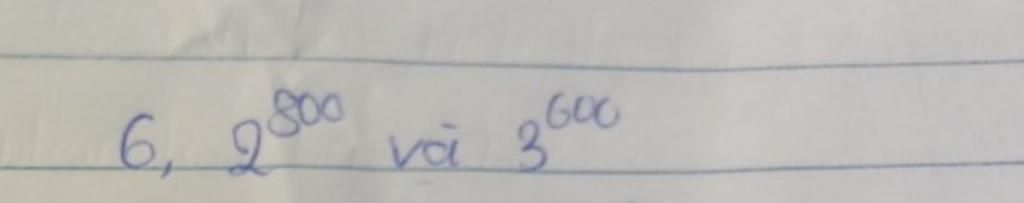 6, 2^800 và 3^600